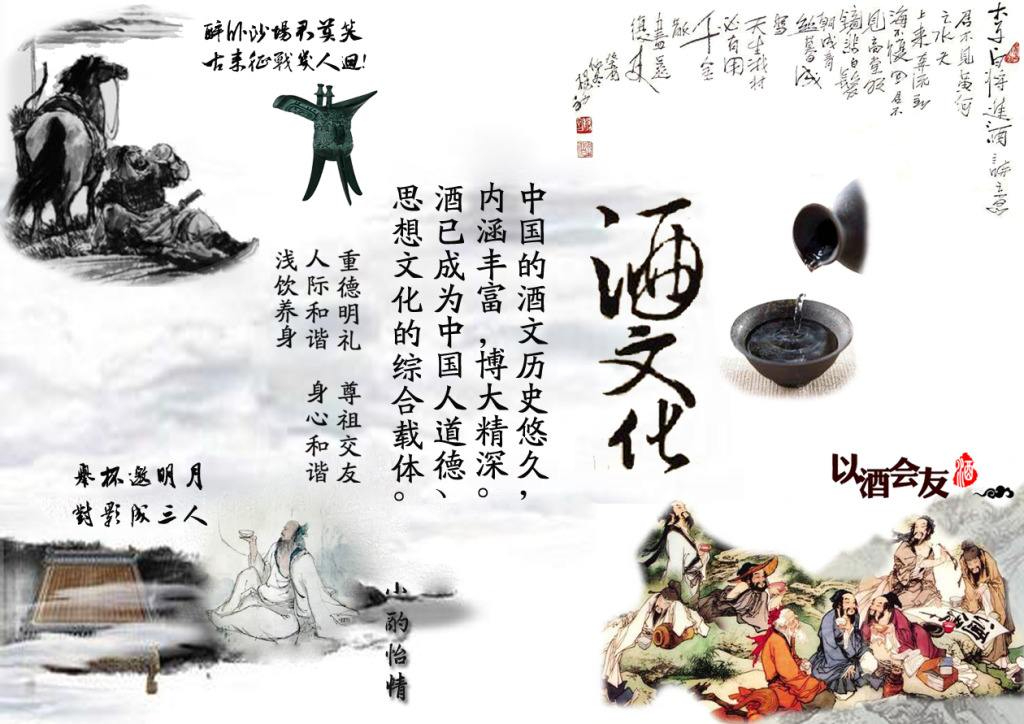 醉卧沙場君莫笑
古来征戰幾人迴!
李白将進酒詩意
君不見黃河
之水天
上来奔流到
海不復回君不
見高堂明
鏡悲白髮
朝成青
絲暮成
雪
天生我材
必有用
千金
散
盡還
復来
酒文化
中国的酒文历史悠久，
内涵丰富，博大精深。
酒已成为中国人道德、
思想文化的综合载体。
重德明礼 尊祖交友
人际和谐 身心和谐
浅饮养身
舉杯邀明月
對影成三人
小酌怡情
以酒会友
酒